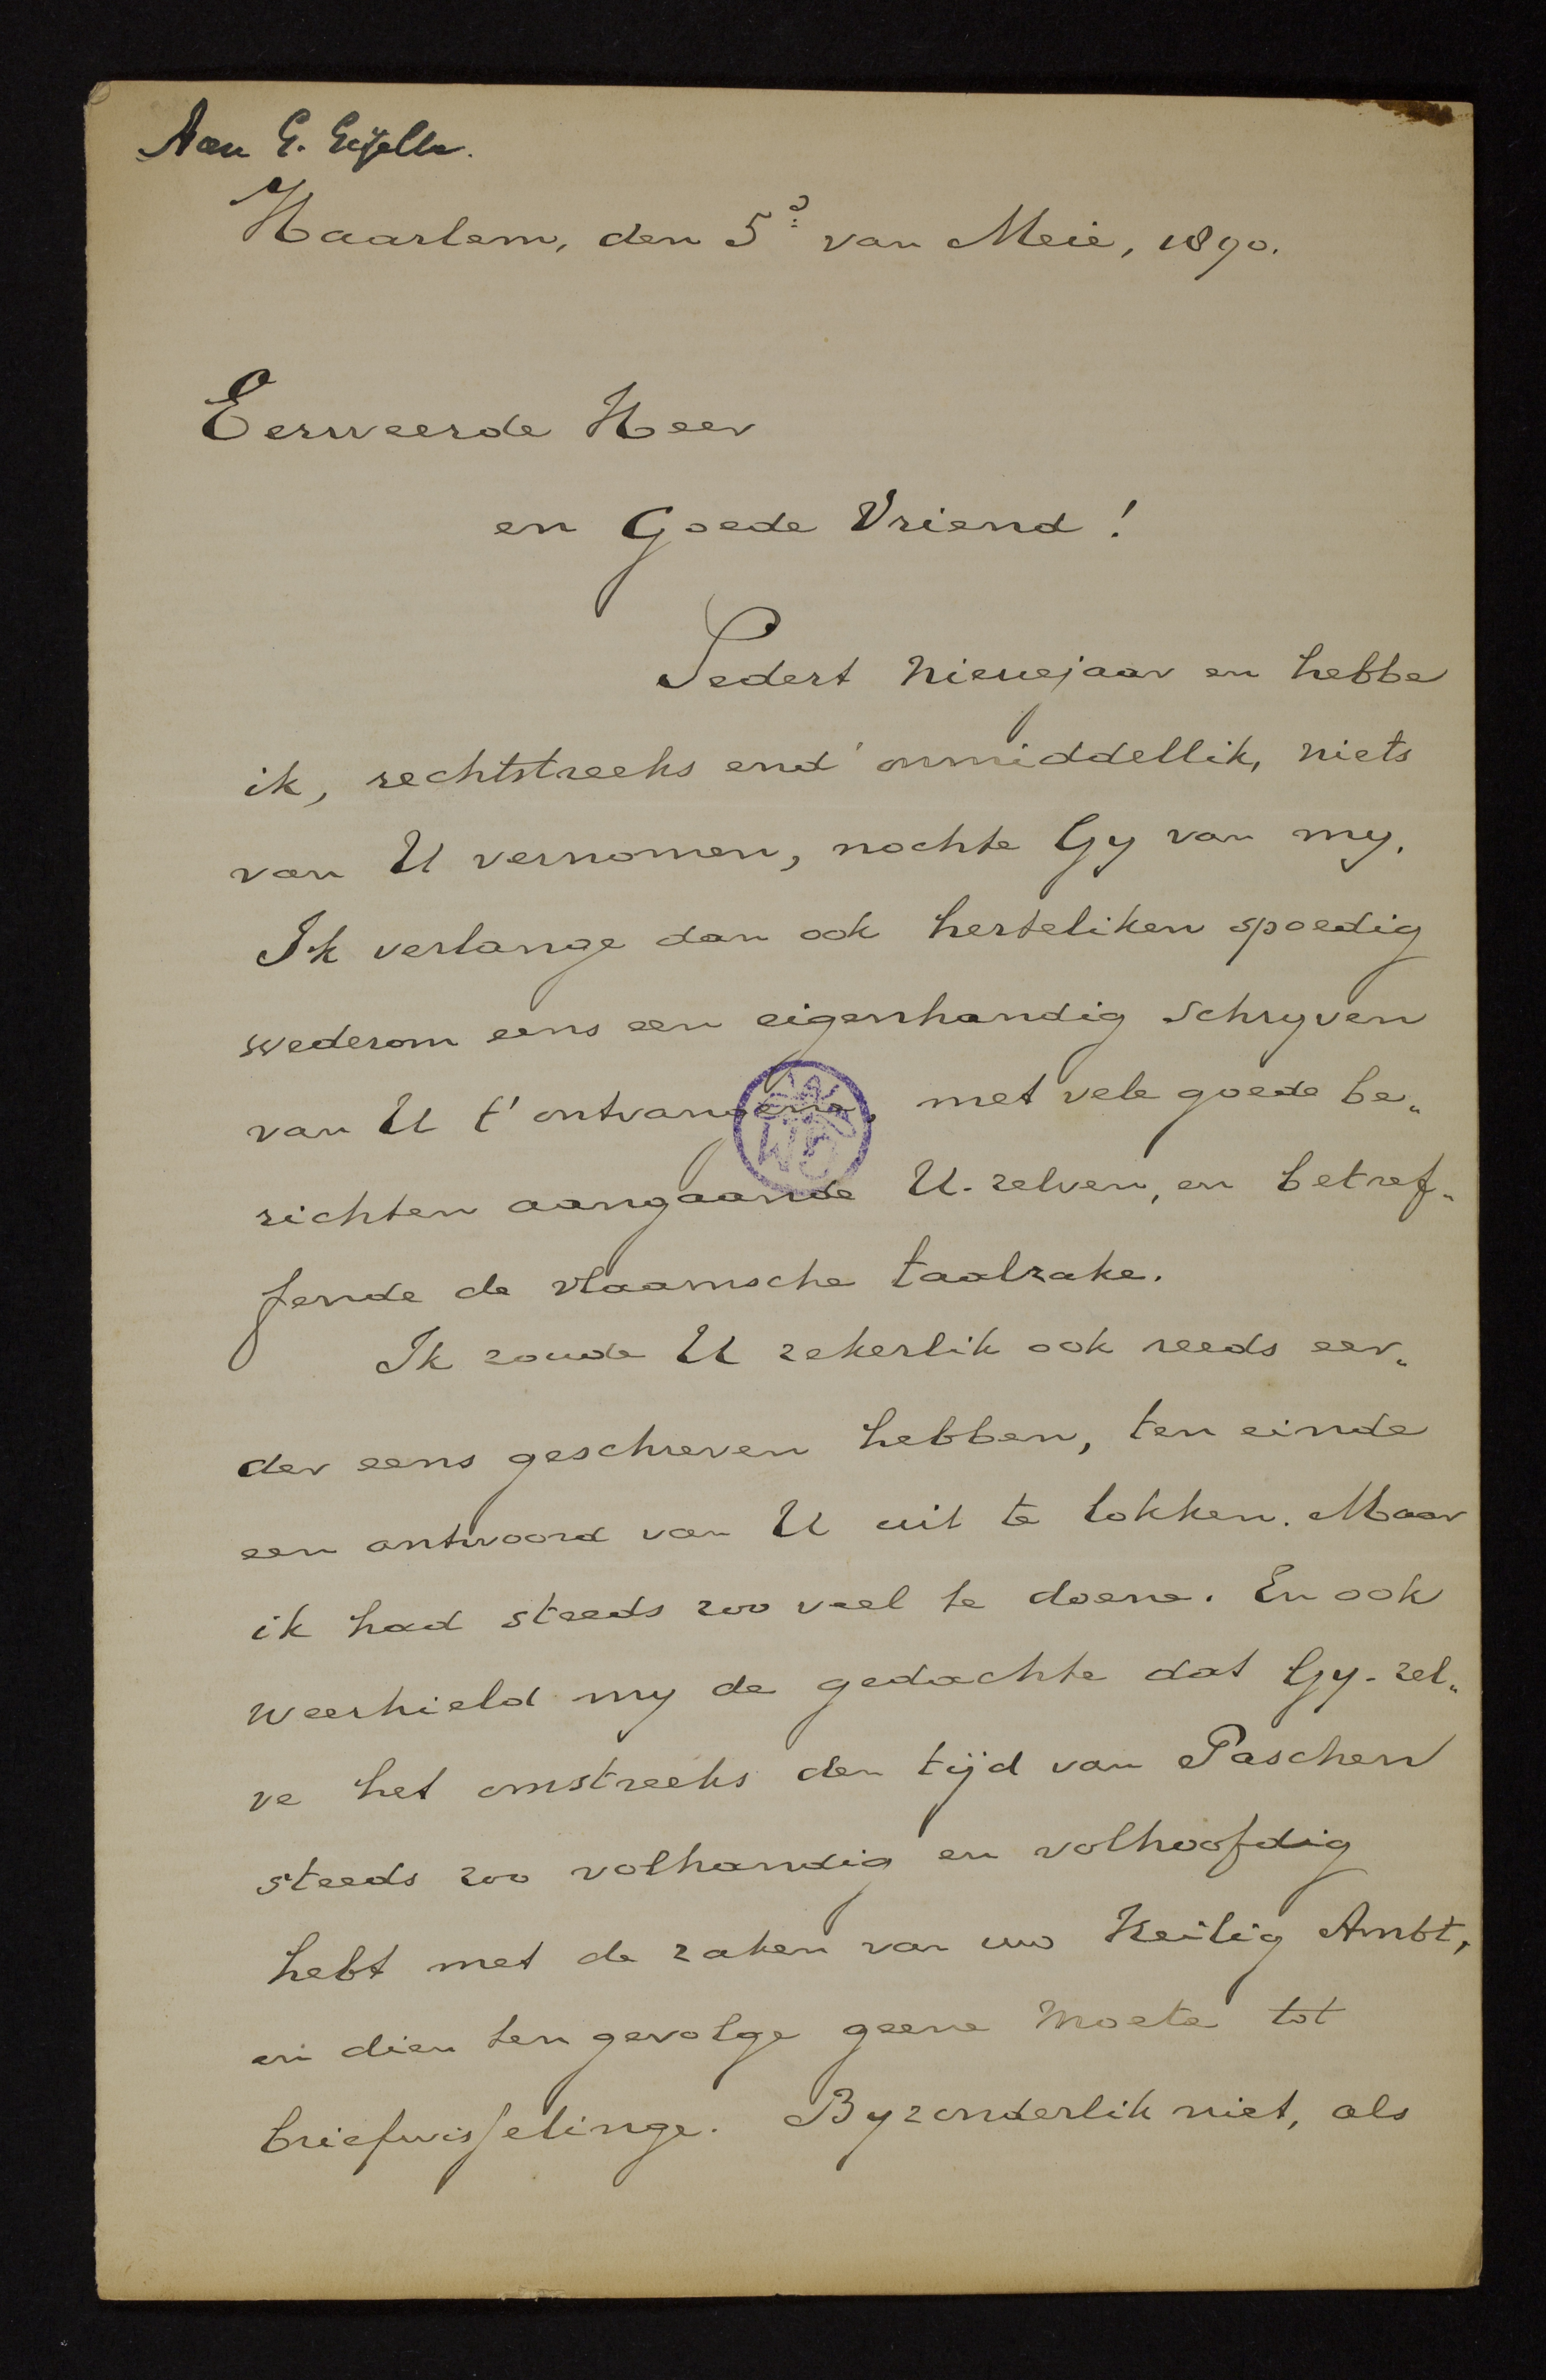 Aan G. Gezelle.
Haarlem, den 5ᵈ van Meie, 1890.
Eerweerde Heer
en Goede Vriend!
Sedert Nieuejaar en hebbe
ik, rechtstreeks end' onmiddellik, niets
van U vernomen, nochte Gy van my.
Ik verlange dan ook herteliken spoedig
wederom eens een eigenhandig schryven
van U t' ontvangene, met vele goede be-
richten aangaande U-zelven, en betref-
fende de vlaamsche taalzake.
Ik zoude U zekerlik ook reeds eer-
der eens geschreven hebben, ten einde
een antwoord van U uit te lokken. Maar
ik had steeds zoo veel te doene. En ook
weerhield my de gedachte dat Gy-zel-
ve het omstreeks den tijd van Paschen
steeds zoo volhandig en volhoofdig
hebt met de zaken van uw Heilig Ambt,
en dien ten gevolge geene moete tot
briefwisselinge. Byzonderlik niet, als